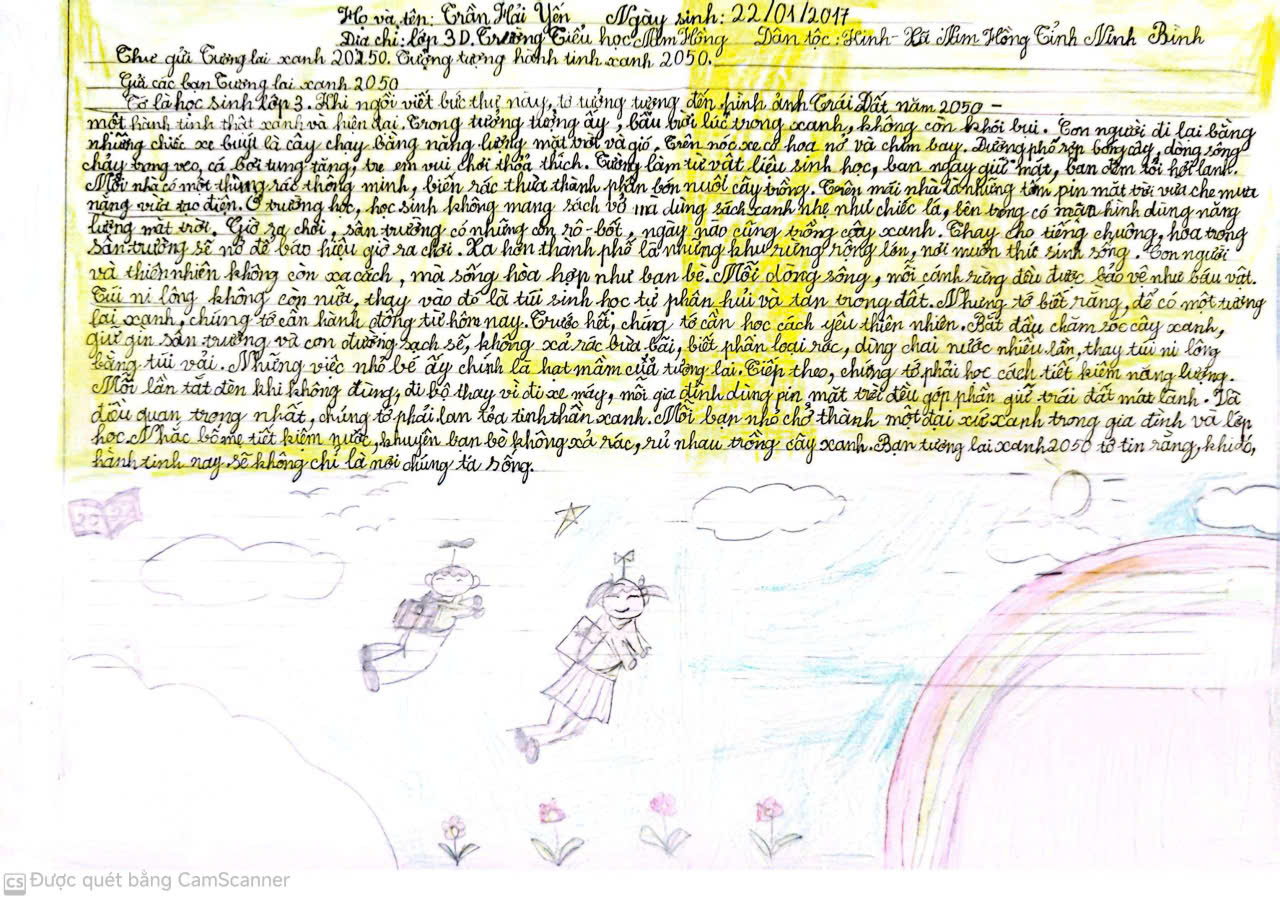 Họ và tên: Trần Hải Yến. Ngày sinh: 22/01/2017
Địa chỉ: lớp 3D. Trường Tiểu học Kim Hồng Dân tộc: Kinh - Xã Kim Hồng Tỉnh Ninh Bình
Thư gửi Tương lai xanh 20250. Tưởng tượng hành tinh xanh 2050.
Gửi các bạn Tương lai xanh 2050
Tớ là học sinh lớp 3. Khi ngồi viết bức thư này, tớ tưởng tượng đến hình ảnh Trái Đất năm 2050 –
một hành tinh thật xanh và hiện đại. Trong tưởng tượng ấy, bầu trời lúc trong xanh, không còn khói bụi. Con người đi lại bằng
những chiếc xe buýt là cây chạy bằng năng lượng mặt trời và gió. Trên nóc xe có hoa nở và chim bay. Đường phố rợp bóng cây, dòng sông
chảy trong veo, cá bơi tung tăng, trẻ em vui chơi thỏa thích. Tường làm từ vật liệu sinh học, ban ngày giữ mát, ban đêm tỏi hơi lạnh.
Mỗi nhà có một thùng rác thông minh, biến rác thừa thành phân bón nuôi cây trồng. Trên mái nhà là những tấm pin mặt trời vừa che mưa
nắng vừa tạo điện. Ở trường học, học sinh không mang sách vở mà dùng sách xanh nhẹ như chiếc lá, bên trong có màn hình dùng năng
lượng mặt trời. Giờ ra chơi, sân trường có những con rô-bốt, ngày nào cũng trồng cây xanh. Thay cho tiếng chuông, hoa trong
sân trường sẽ nở để báo hiệu giờ ra chơi. Xa hơn thành phố là những khu rừng rộng lớn, nơi muôn thú sinh sống. Con người
và thiên nhiên không còn xa cách, mà sống hòa hợp như bạn bè. Mỗi dòng sông, mỗi cánh rừng đều được bảo vệ như báu vật.
Túi ni lông không còn nữa, thay vào đó là túi sinh học tự phân hủi và tan trong đất. Nhưng tớ biết rằng, để có một tương
lai xanh, chúng tớ cần hành động từ hôm nay. Trước hết, chúng tớ cần học cách yêu thiên nhiên. Bắt đầu chăm sóc cây xanh,
giữ gìn sân trường và con đường sạch sẽ, không xả rác bừa bãi, biết phân loại rác, dùng chai nước nhiều lần, thay túi ni lông
bằng túi vải. Những việc nhỏ bé ấy chính là hạt mầm của tương lai. Tiếp theo, chúng tớ phải học cách tiết kiệm năng lượng.
Mỗi lần tắt đèn khi không dùng, đi bộ thay vì đi xe máy, mỗi gia đình dùng pin mặt trời đều góp phần giữ trái đất mát lành. Và
điều quan trọng nhất, chúng tớ phải lan tỏa tinh thần xanh. Mỗi bạn nhỏ chở thành một đại xứ xanh trong gia đình và lớp
học. Nhắc bố mẹ tiết kiệm nước, khuyên bạn bè không xả rác, rủ nhau trồng cây xanh. Bạn tương lai xanh 2050 tớ tin rằng, khi đó,
hành tinh này sẽ không chỉ là nơi chúng ta sống.
CS Được quét bằng CamScanner